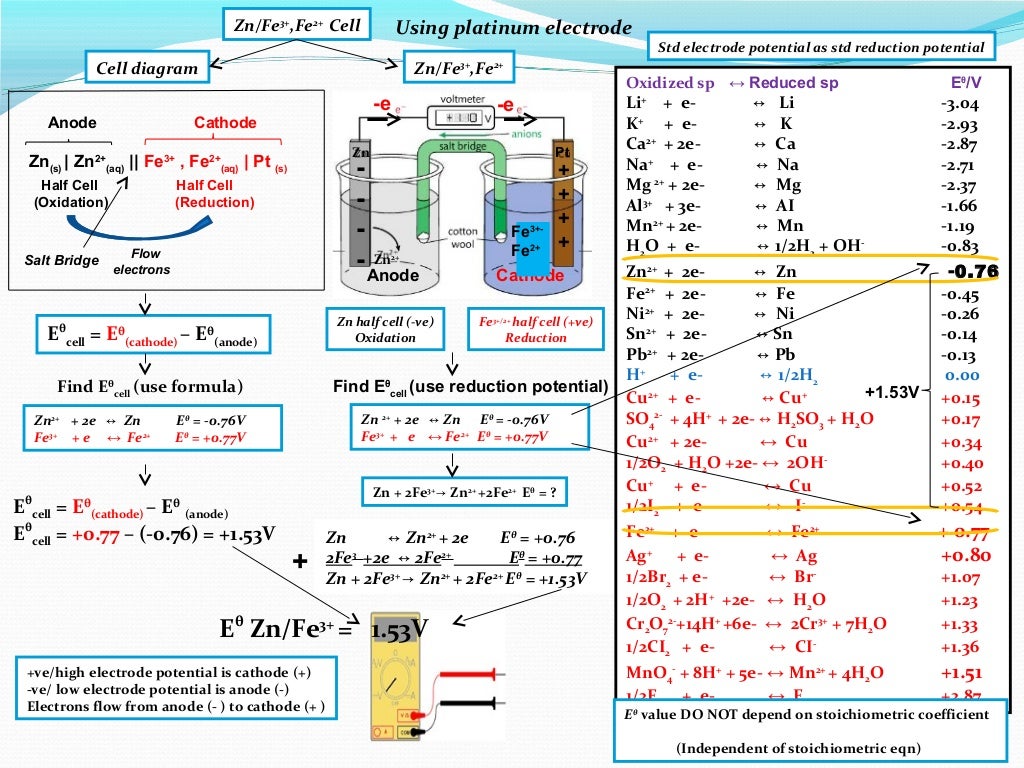 Zn/Fe³⁺,Fe²⁺ Cell
Using platinum electrode
Std electrode potential as std reduction potential
Cell diagram
Zn/Fe³⁺,Fe²⁺
Anode Cathode
Zn(s) | Zn²⁺(aq) || Fe³⁺ , Fe²⁺(aq) | Pt (s)
Half Cell Half Cell
(Oxidation) (Reduction)
Salt Bridge
Flow
electrons
-e e⁻
voltmeter
V
-e e⁻
anions
salt bridge
Zn
Pt
- - - -
+ + + +
cotton
wool
Zn²⁺
Fe³⁺
Fe²⁺
Anode
Cathode
Zn half cell (-ve)
Oxidation
Fe³⁺/²⁺ half cell (+ve)
Reduction
Eᶿcell = Eᶿ(cathode) – Eᶿ(anode)
Find Eᶿcell (use formula)
Zn²⁺ + 2e ↔ Zn Eᶿ = -0.76V
Fe³⁺ + e ↔ Fe²⁺ Eᶿ = +0.77V
Eᶿcell = Eᶿ(cathode) – Eᶿ(anode)
Eᶿcell = +0.77 – (-0.76) = +1.53V
Find Eᶿcell (use reduction potential)
Zn ²⁺ + 2e ↔ Zn Eᶿ = -0.76V
Fe³⁺ + e ↔ Fe²⁺ Eᶿ = +0.77V
Zn + 2Fe³⁺→ Zn²⁺ +2Fe²⁺ Eᶿ = ?
+
Zn ↔ Zn²⁺ + 2e Eᶿ = +0.76
2Fe³⁺ +2e ↔ 2Fe²⁺ Eᶿ = +0.77
Zn + 2Fe³⁺→ Zn²⁺ + 2Fe²⁺ Eᶿ = +1.53V
Eᶿ Zn/Fe³⁺ = 1.53V
V
COM
+ve/high electrode potential is cathode (+)
-ve/ low electrode potential is anode (-)
Electrons flow from anode (- ) to cathode (+ )
Oxidized sp ↔ Reduced sp Eᶿ/V
Li⁺ + e- ↔ Li -3.04
K⁺ + e- ↔ K -2.93
Ca²⁺ + 2e- ↔ Ca -2.87
Na⁺ + e- ↔ Na -2.71
Mg ²⁺ + 2e- ↔ Mg -2.37
Al³⁺ + 3e- ↔ AI -1.66
Mn²⁺ + 2e- ↔ Mn -1.19
H₂O + e- ↔ 1/2H₂ + OH⁻ -0.83
Zn²⁺ + 2e- ↔ Zn -0.76
Fe²⁺ + 2e- ↔ Fe -0.45
Ni²⁺ + 2e- ↔ Ni -0.26
Sn²⁺ + 2e- ↔ Sn -0.14
Pb²⁺ + 2e- ↔ Pb -0.13
H⁺ + e- ↔ 1/2H₂ 0.00
+1.53V
Cu²⁺ + e- ↔ Cu⁺ +0.15
SO₄²⁻ + 4H⁺ + 2e- ↔ H₂SO₃ + H₂O +0.17
Cu²⁺ + 2e- ↔ Cu +0.34
1/2O₂ + H₂O +2e- ↔ 2OH⁻ +0.40
Cu⁺ + e- ↔ Cu +0.52
1/2I₂ + e- ↔ I⁻ +0.54
Fe³⁺ + e- ↔ Fe²⁺ +0.77
Ag⁺ + e- ↔ Ag +0.80
1/2Br₂ + e- ↔ Br⁻ +1.07
1/2O₂ + 2H⁺ +2e- ↔ H₂O +1.23
Cr₂O₇²⁻+14H⁺ +6e- ↔ 2Cr³⁺ + 7H₂O +1.33
1/2CI₂ + e- ↔ CI⁻ +1.36
MnO₄⁻ + 8H⁺ + 5e- ↔ Mn²⁺ + 4H₂O +1.51
1/2F + e- ↔ F +2.87
Eᶿ value DO NOT depend on stoichiometric coefficient
(Independent of stoichiometric eqn)